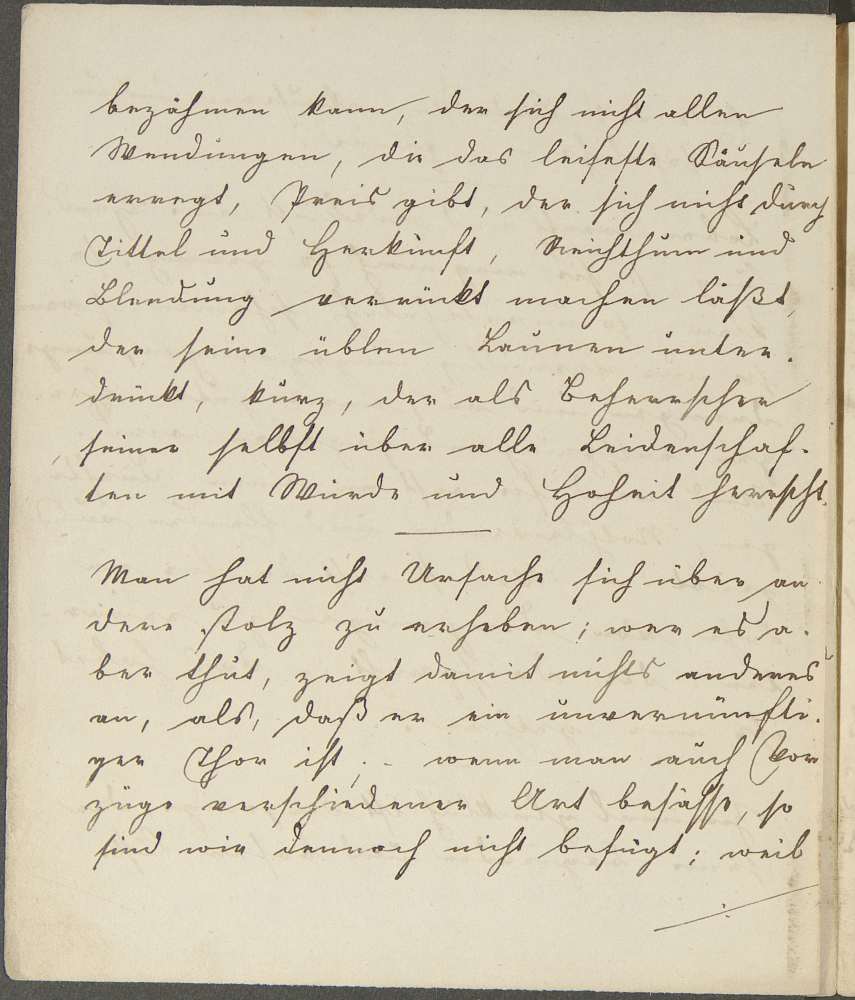 bezähmen kann, der sich nicht allen
Wendungen, die das leiseste Säuseln
erregt, Preis gibt, der sich nicht durch
Tittel und Herkunft, Reichthum und
Blendung verrückt machen läßt,
der seine üblen Launen unter-
drückt, kurz, der als Beherrscher
seiner selbst über alle Leidenschaf-
ten mit Würde und Hoheit herrscht.
Man hat nicht Ursache sich über an
dere stolz zu erheben; wer es a-
ber thut, zeigt damit nichts anderes
an, als, daß er ein unvernünfti-
ger Thor ist; - wenn man auch Vor
züge verschiedener Art besässe, so
sind wir dennoch nicht befugt; weil